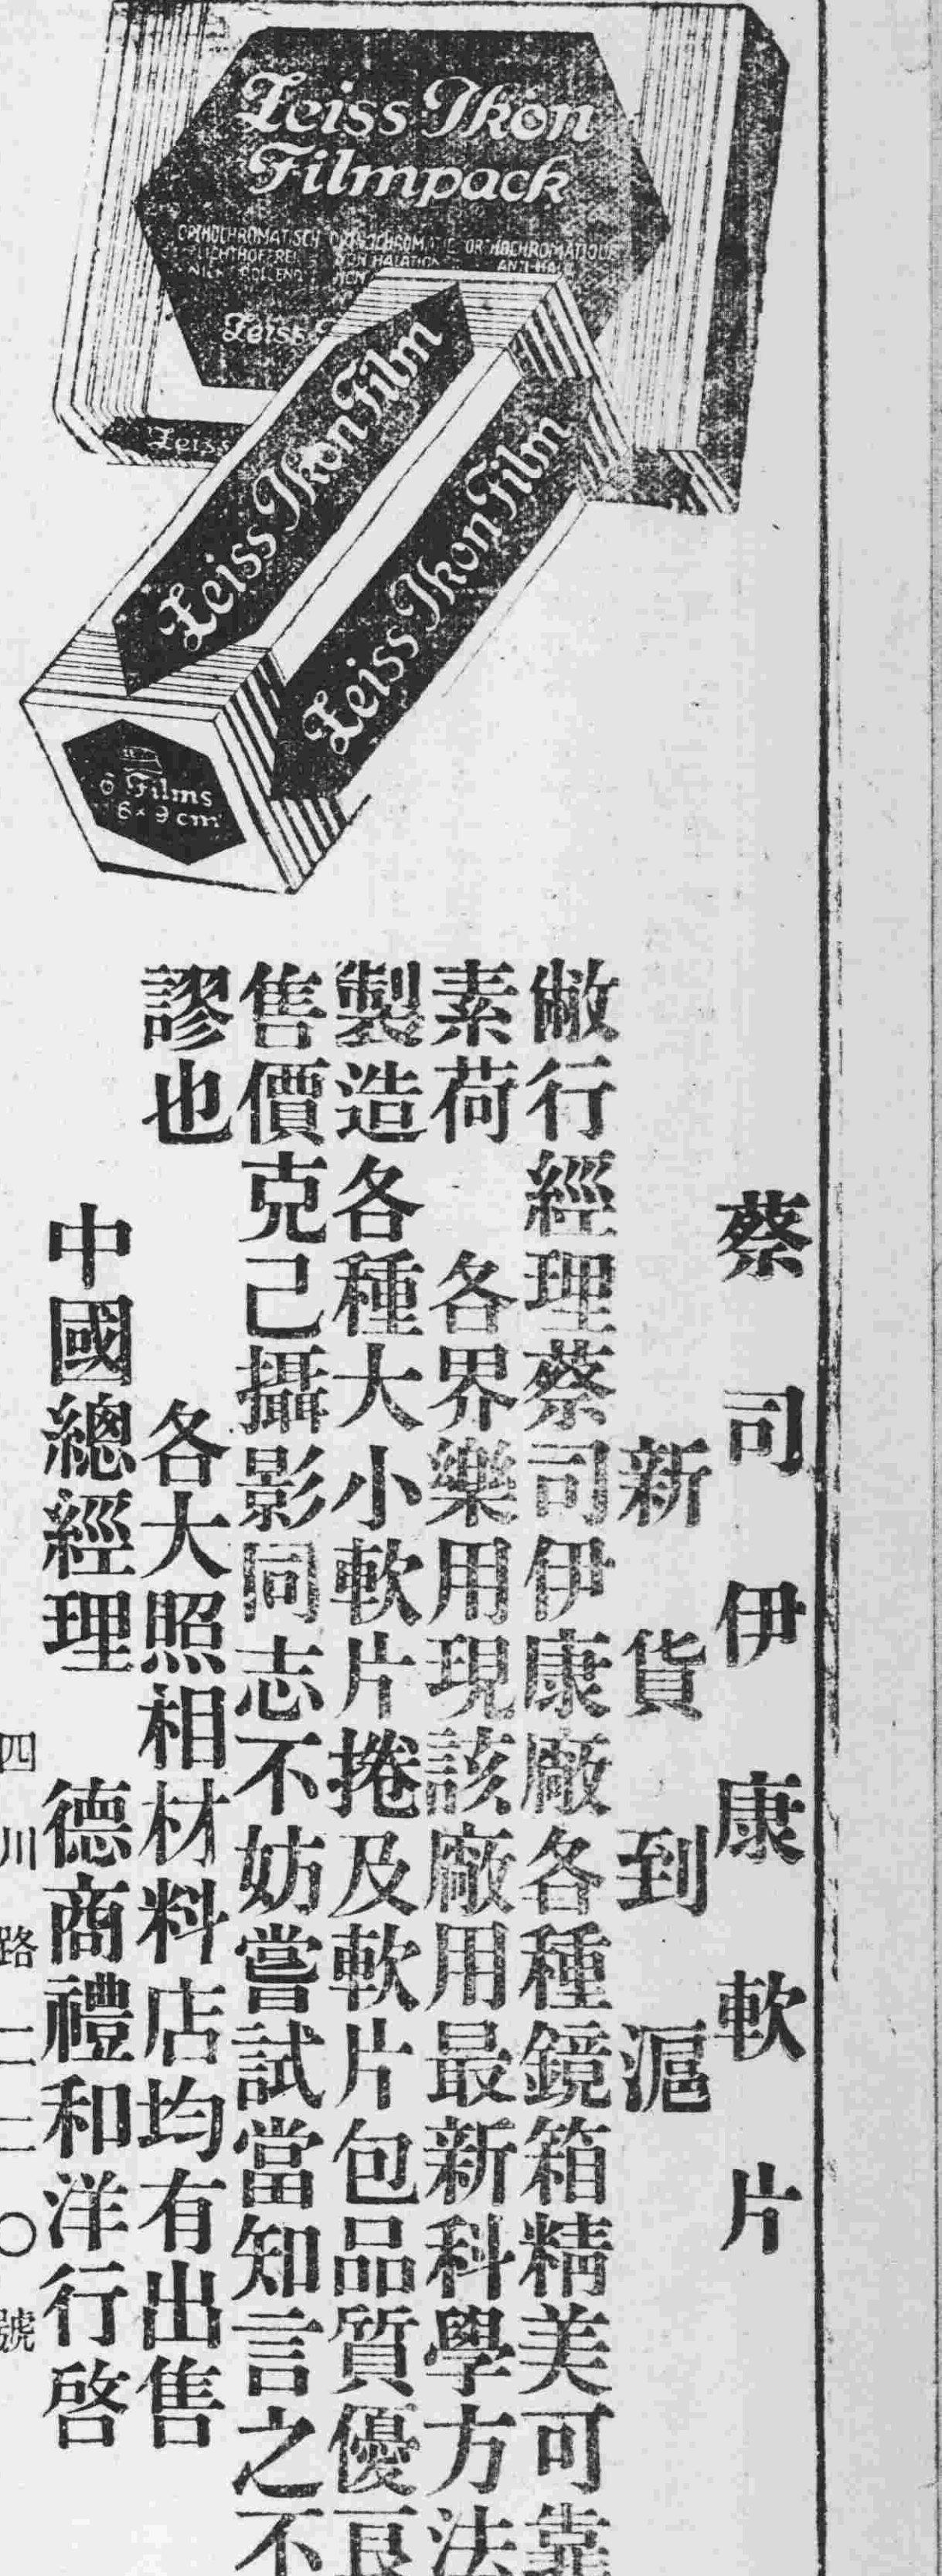 Zeiss Ikon
Filmpack
ORTHOCHROMATISCH ORTHOCHROMATIC ORTHOCHROMATIQUE
LICHTHOFFREI NON HALATION ANTI-HAL
NICHT ROLLEND NON
Zeiss
Zeiss
Zeiss Ikon Film
Zeiss Ikon Film
6 Films
6×9 cm
蔡司伊康軟片
新貨到滬
敝行經理蔡司伊康廠各種鏡箱精美可靠
素荷 各界樂用現該廠用最新科學方法
製造各種大小軟片捲及軟片包品質優良
售價克己攝影同志不妨嘗試當知言之不
謬也
各大照相材料店均有出售
中國總經理 德商禮和洋行啓
四川路二二〇號